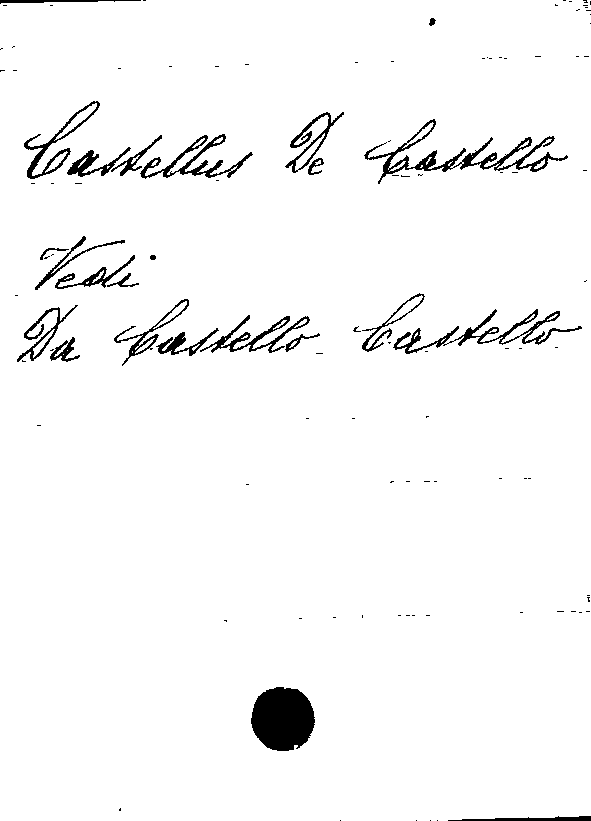 Castellus De Castello
Vedi
Da Castello Castello